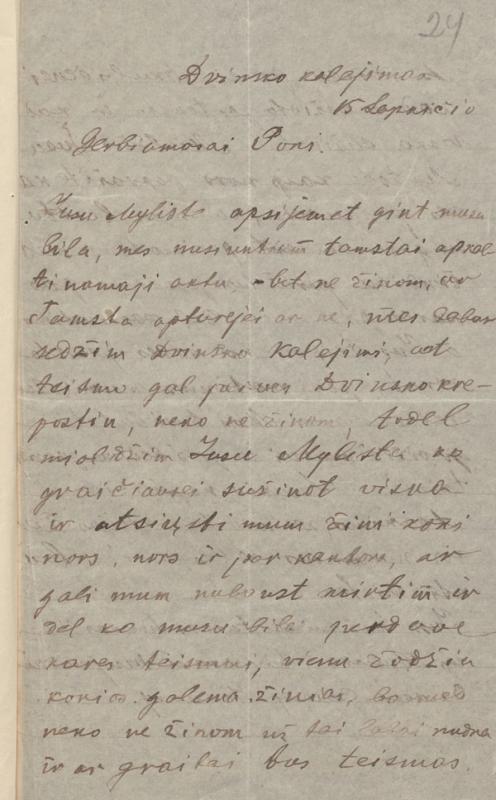 24
Dvinsko kalejimas
15 Lapričio
Gerbiamasai Pons.
Jusu Mylista apsijemet gint musu
bila, mes nusiuntem tamstai apkal
tinamaji aktu, bet ne žinom, ar
Tamsta apturejei ar ne, mes dabar
sedžim Dvinsko Kalejimi, ot
teismu gal jau ven Dvinsko kre-
postiu, neko ne žinom, todel
meldžim Jusu Mylistos ko
graičiausei sužinot viska
ir atsiųsti mum žini koki
nors, nors ir par kantora, ar
gali mum nubaust mirtim ir
del ko musu bila perdave
kares teismui, vienu žodžiu
kokios galema žinias, bo mes
neko ne žinom už tai labai nudna
ir ar graitai bus teismas.